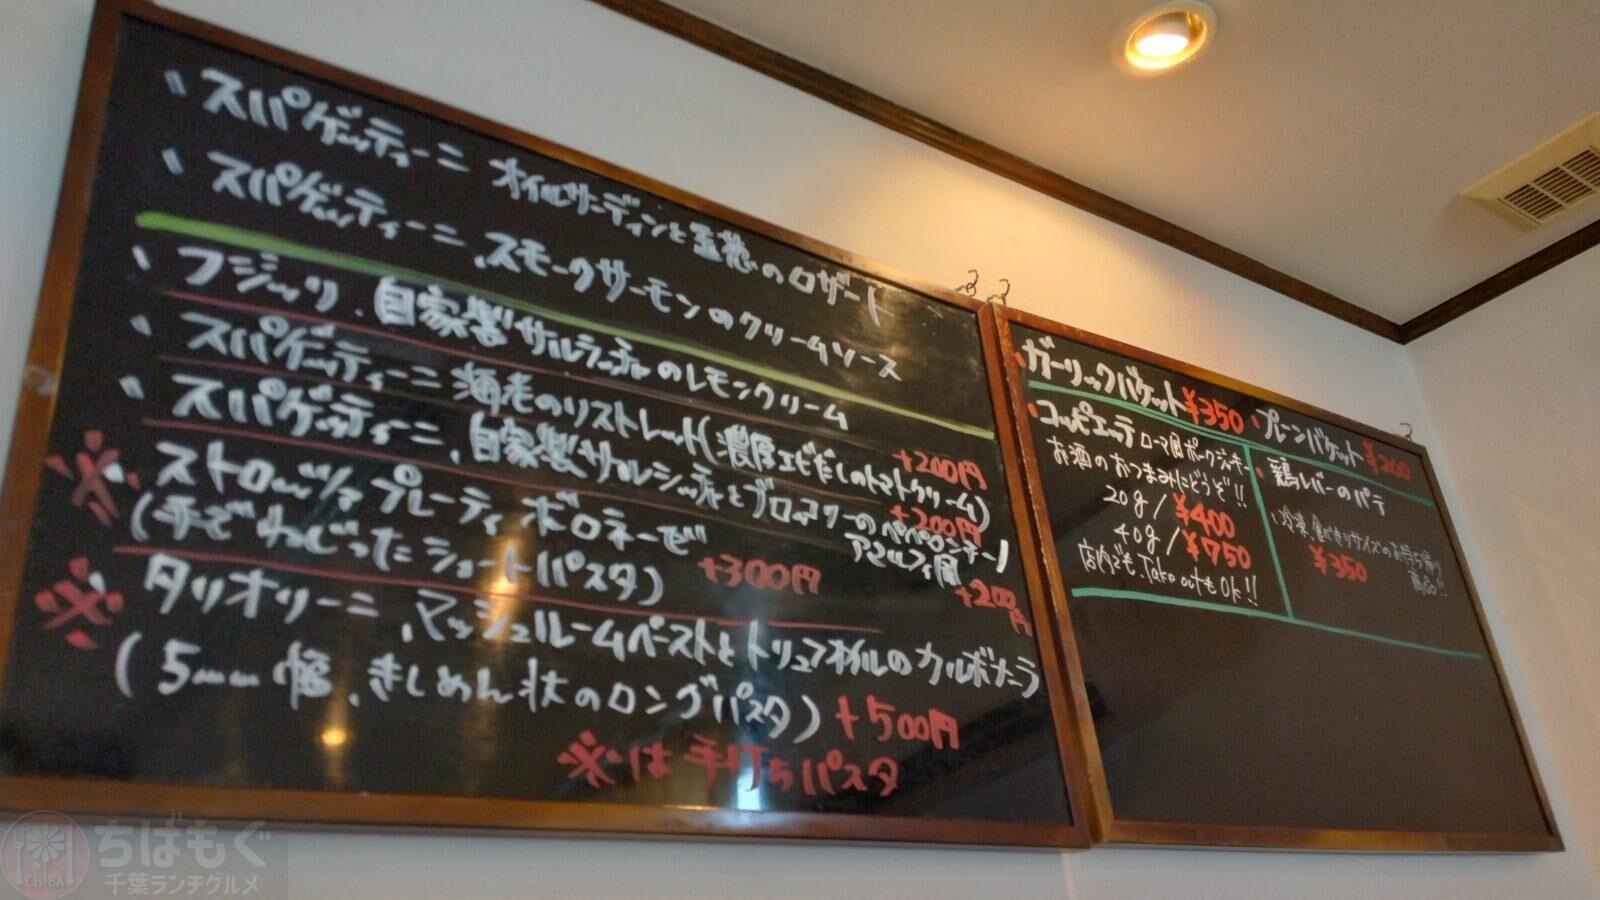 スパゲッティーニ オイルサーディンと玉葱のロザート
スパゲッティーニ、スモークサーモンのクリームソース
フジッリ、自家製サルシッチャのレモンクリーム
スパゲッティーニ 海老のリストレット(濃厚エビだしのトマトクリーム)
+200円
スパゲッティーニ、自家製サルシッチャとブロッコリーのペペロンチーノ
+200円
アマルフィ風
+200円
※ストロッツァプレーティ ボロネーゼ
(手でねじったショートパスタ) +300円
※タリオリーニ、マッシュルームペーストとトリュフオイルのカルボナーラ
(5mm幅、きしめん状のロングパスタ) +500円
※は手打ちパスタ
ガーリックバケット¥350
コッピエッテ ローマ風ポークジャーキー
お酒のおつまみにどうぞ!!
20g/¥400
40g/¥750
店内でも、Take outもOk!!
プレーンバケット¥200
鶏レバーのパテ
¥350
ちばもぐ
千葉ランチグルメ
CHIBA